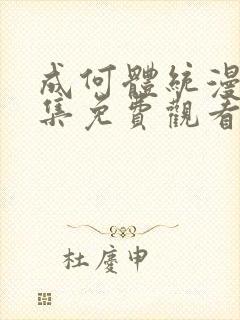 成何體統漫
集免費觀看
杜慶申